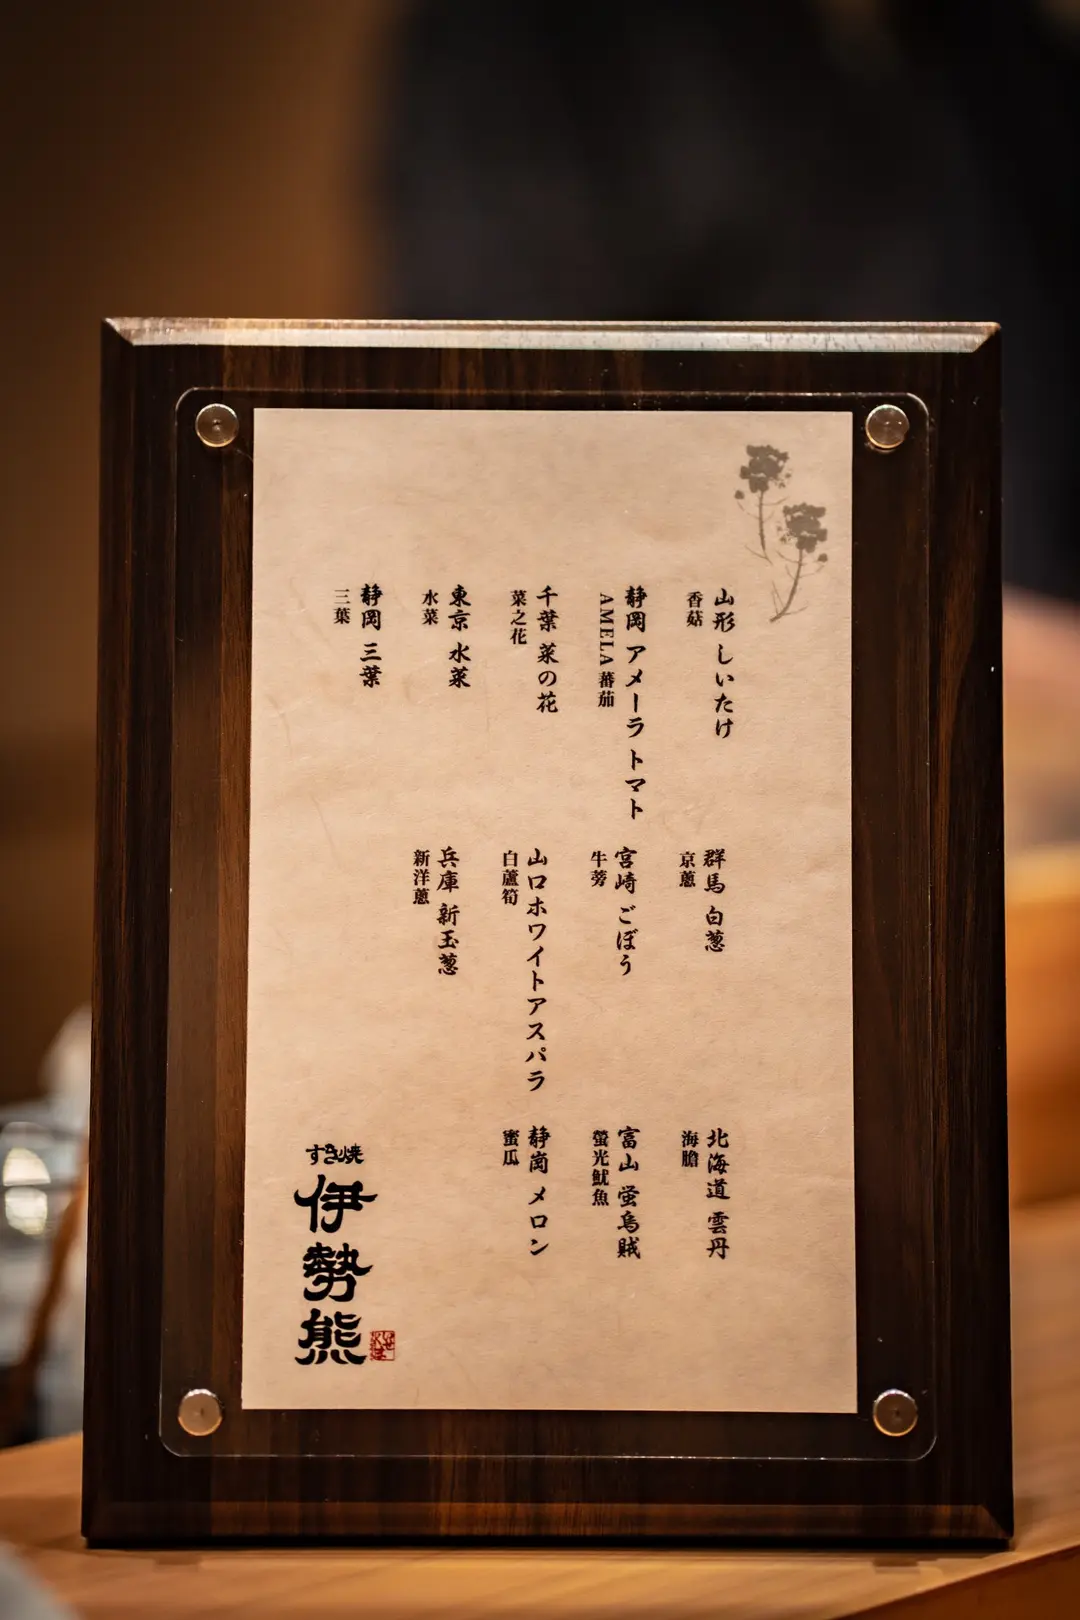 山形 しいたけ
香菇
静岡 アメーラ トマト
AMELA 蕃茄
千葉 菜の花
菜之花
東京 水菜
水菜
静岡 三葉
三葉
群馬 白葱
京蔥
宮崎 ごぼう
牛蒡
山口ホワイトアスパラ
白蘆筍
兵庫 新玉葱
新洋蔥
北海道 雲丹
海膽
富山 蛍烏賊
螢光魷魚
静岡 メロン
蜜瓜
すき焼
伊勢熊